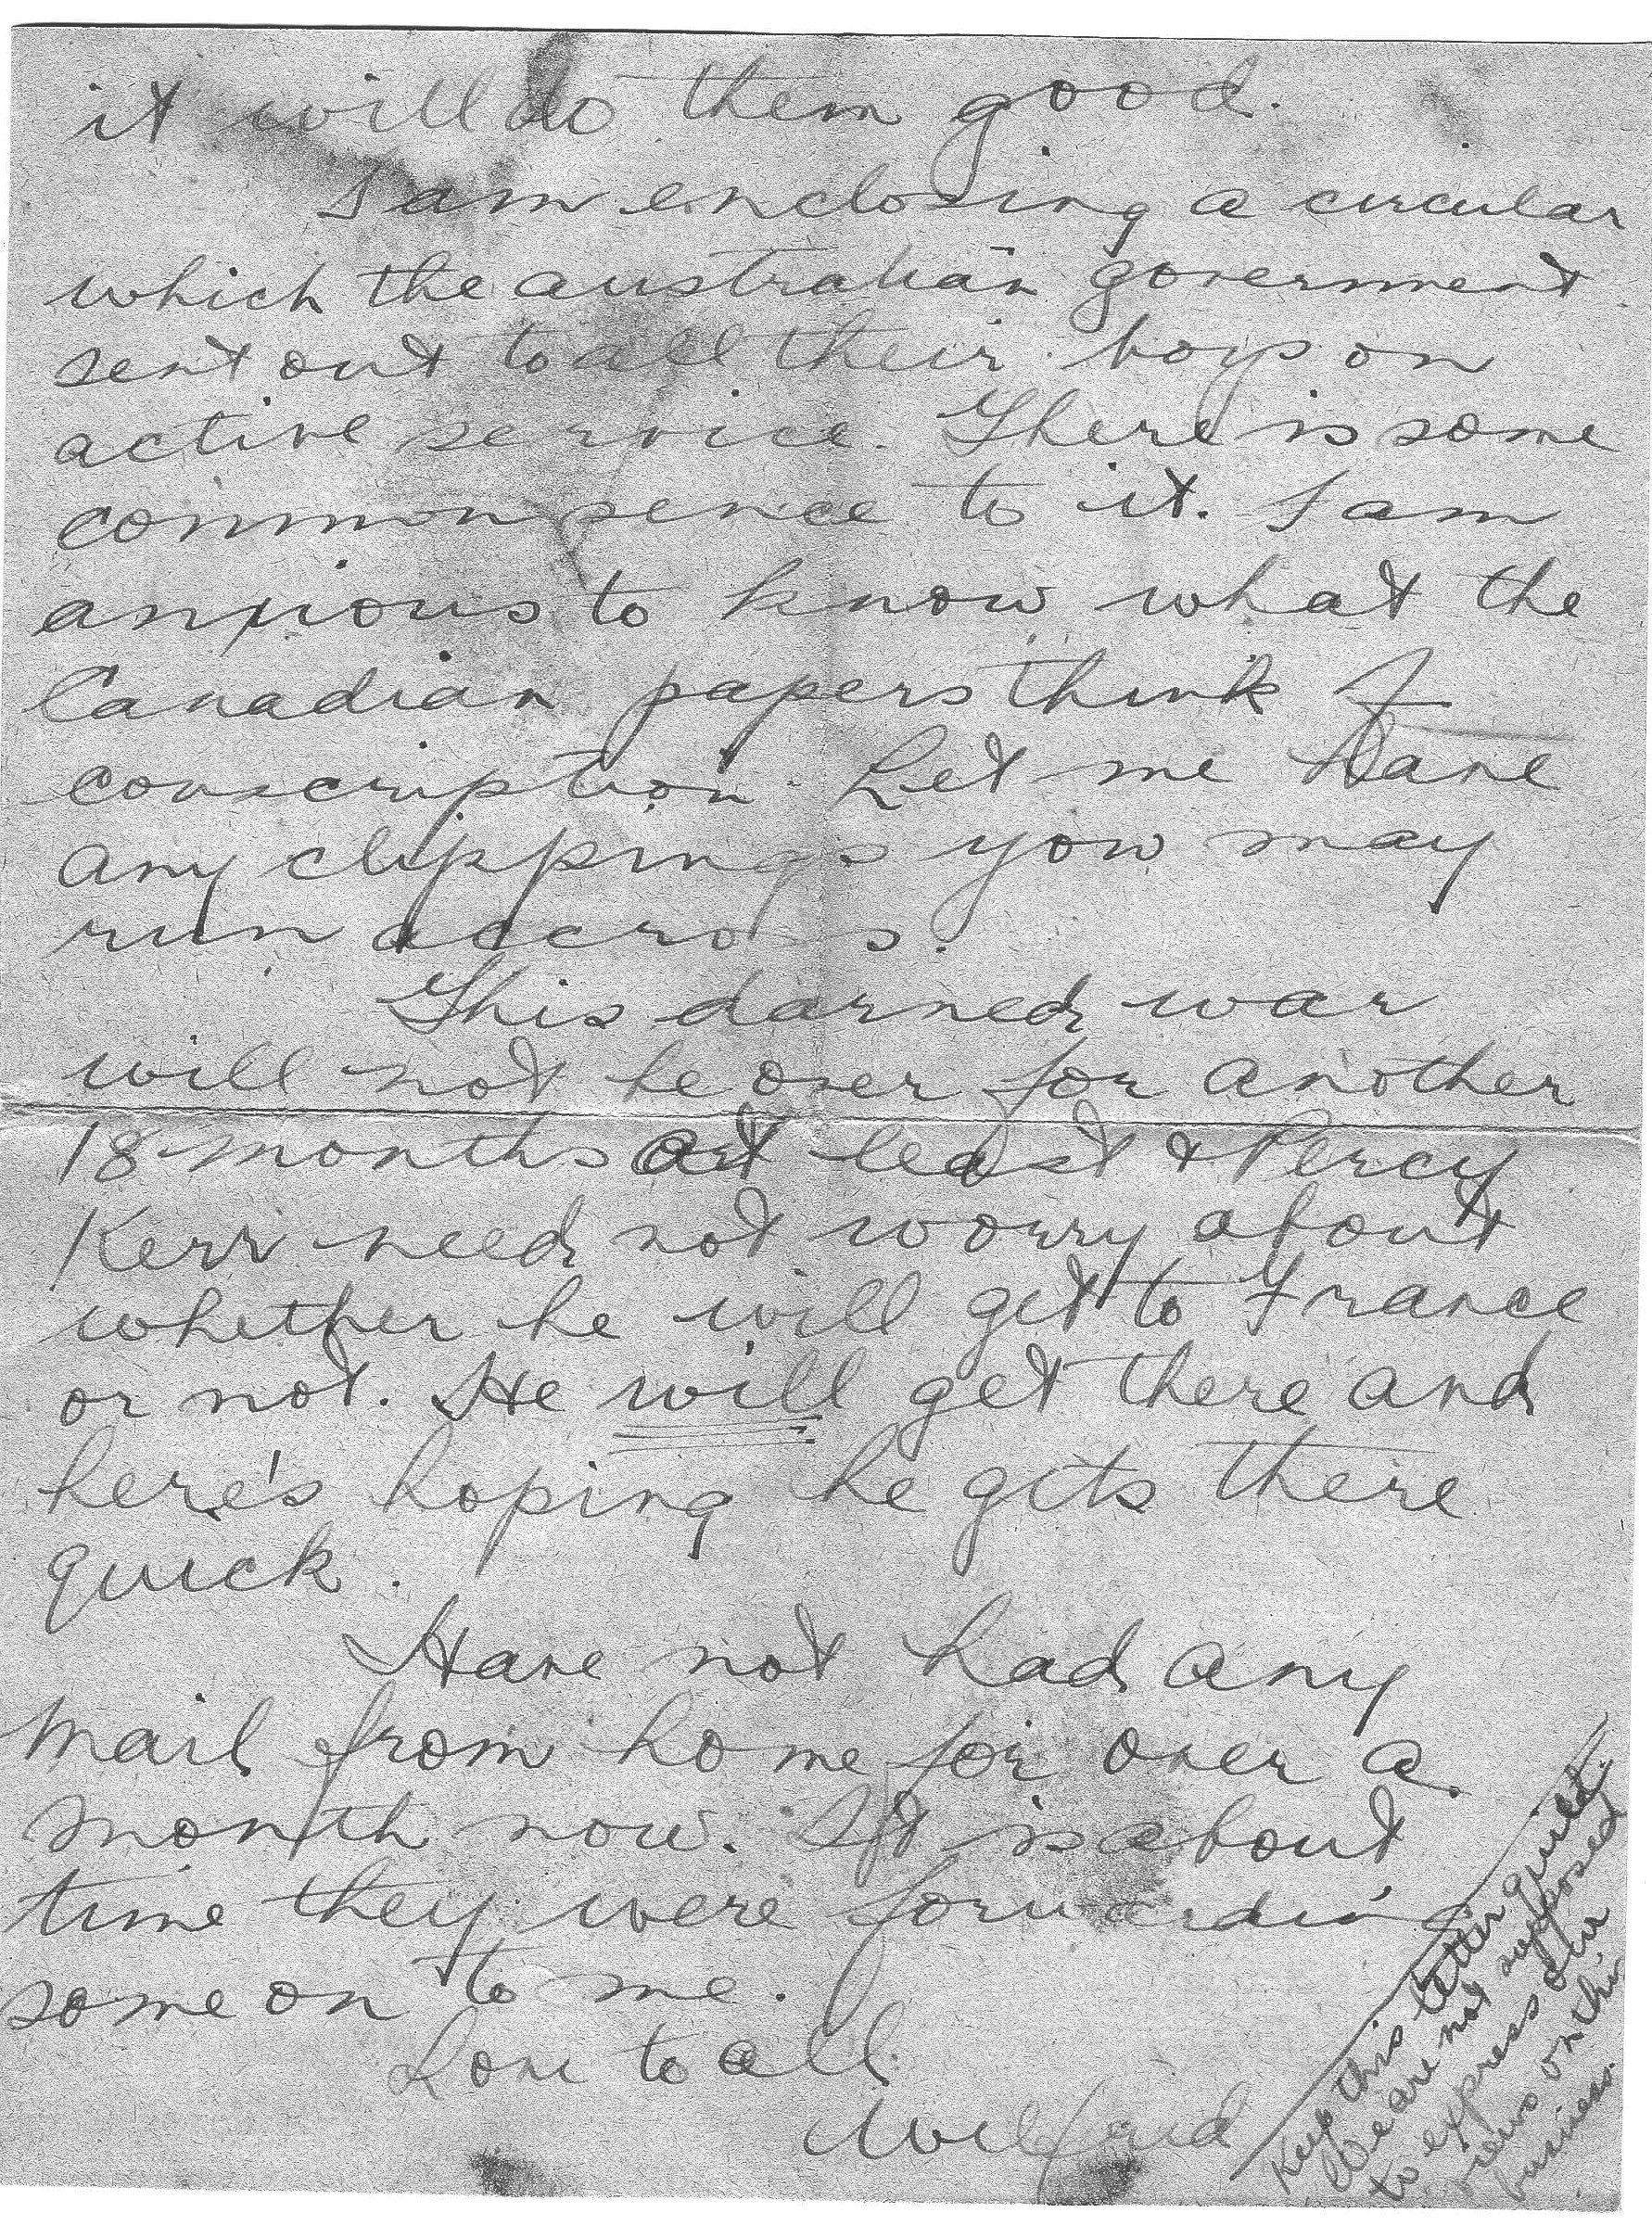 it will do them good.
I am enclosing a circular
which the australian government
sent out to all their boys on
active service. There is some
common sence to it. I am
anxious to know what the
Canadian papers think of
conscription. Let me have
any clippings you may
run accross.
This darned war
will not be over for another
18 months at least & Percy
Kerr need not worry about
whether he will get to France
or not. He will get there and
here's hoping he gets there
quick.
Have not had any
mail from home for over a
month now. It is about
time they were forwarding
some on to me.
Love to all
Wilfard
Keep this letter quiet.
We are not supposed
to express our
views on this
business.